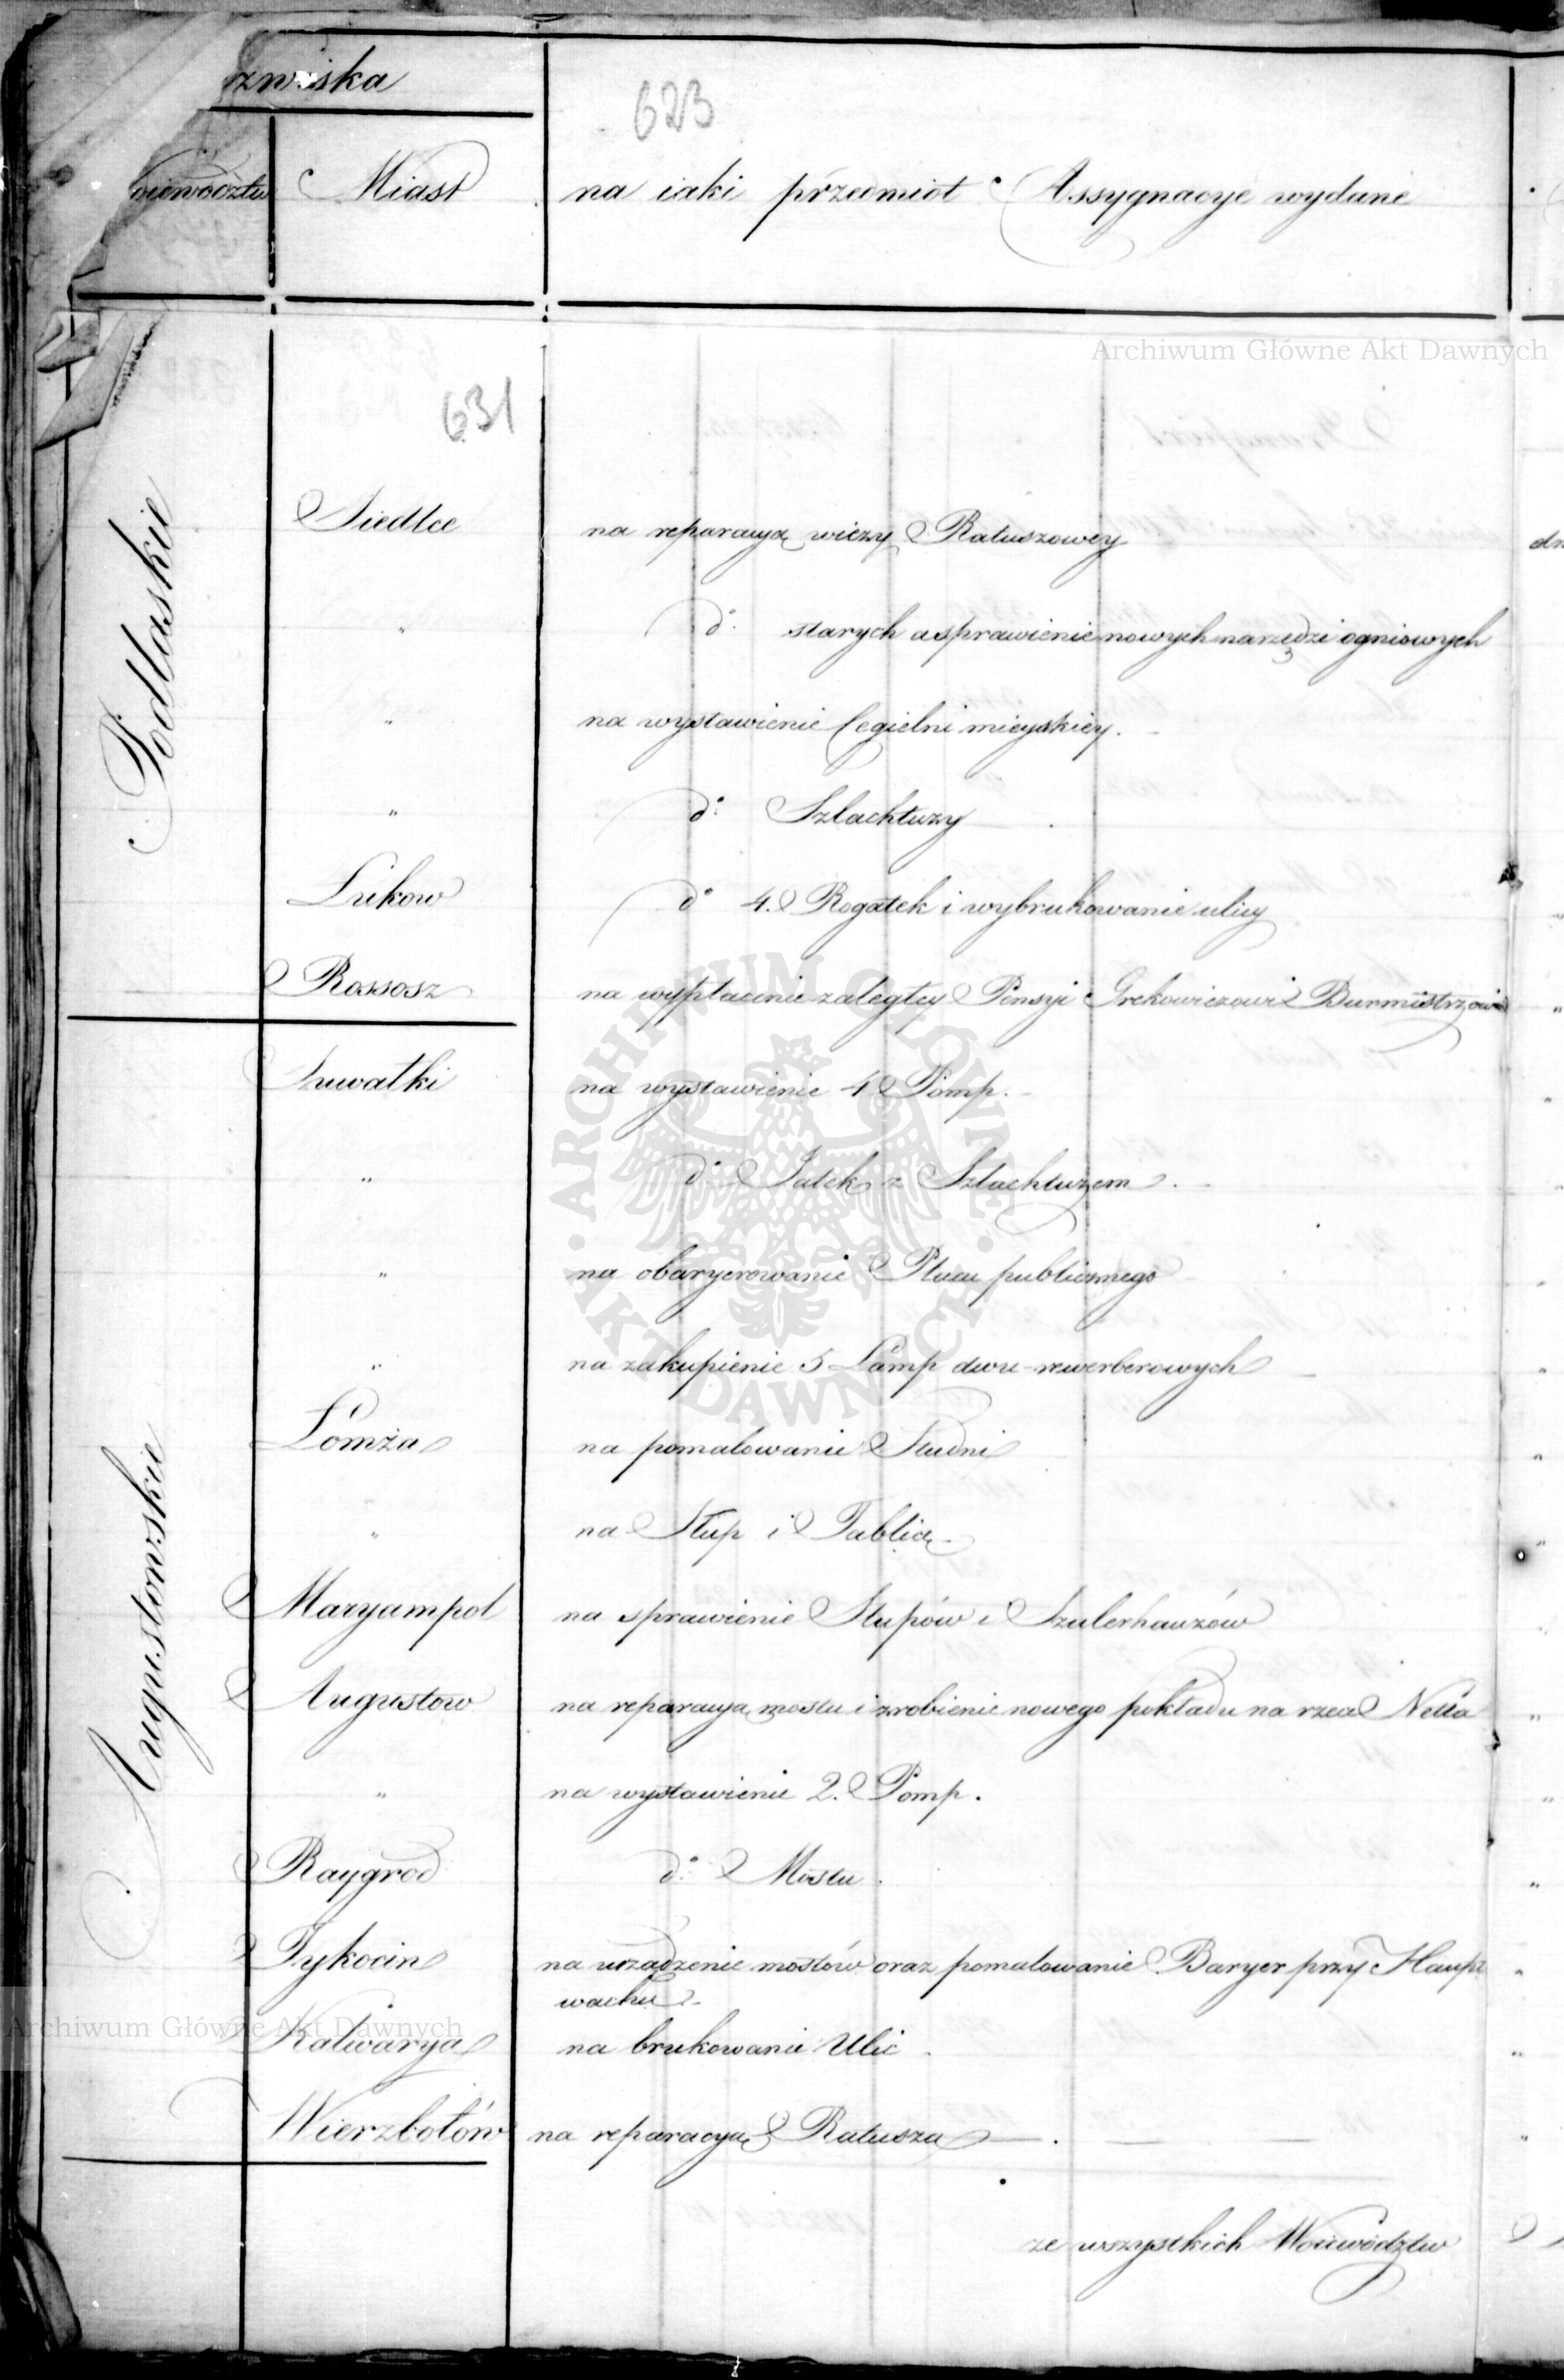 zwiska
623
Miast
na iaki przedmiot Assygnacye wydane
Archiwum Główne Akt Dawnych
631
Podlaskie
Siedlce na reparacyą wieży Ratuszowey
" d° starych a sprawienie nowych narzędzi ogniowych
" na wystawienie Cegielni mieyskiey.
" d° Szlachtuzy
Łukow d° 4. Rogatek i wybrukowanie ulicy
Rossosz na wypłacenie zaległey Pensyi Grekowiczowi Burmistrzowi
Suwałki na wystawienie 4 Pomp.
" d° Jatek z Szlachtuzem.
" na obaryerowanie Placu publicznego
" na zakupienie 5 Lamp dwu-rewerberowych
Augustowskie
Łomża na pomalowanie Studni
" na Słup i Tablicę
Maryampol na sprawienie Słupów i Szulerhauzów
Augustow na reparacyą mostu i zrobienie nowego pokładu na rzece Netta
" na wystawienie 2. Pomp.
Raygrod d° Mostu.
Tykocin na urządzenie mostów oraz pomalowanie Baryer przy Haupt
wachu
Kalwarya na brukowanie Ulic
Wierzbołów na reparacyą Ratusza
ze wszystkich Woiewodztw
ARCHIWUM GŁÓWNE AKT DAWNYCH
Archiwum Główne Akt Dawnych